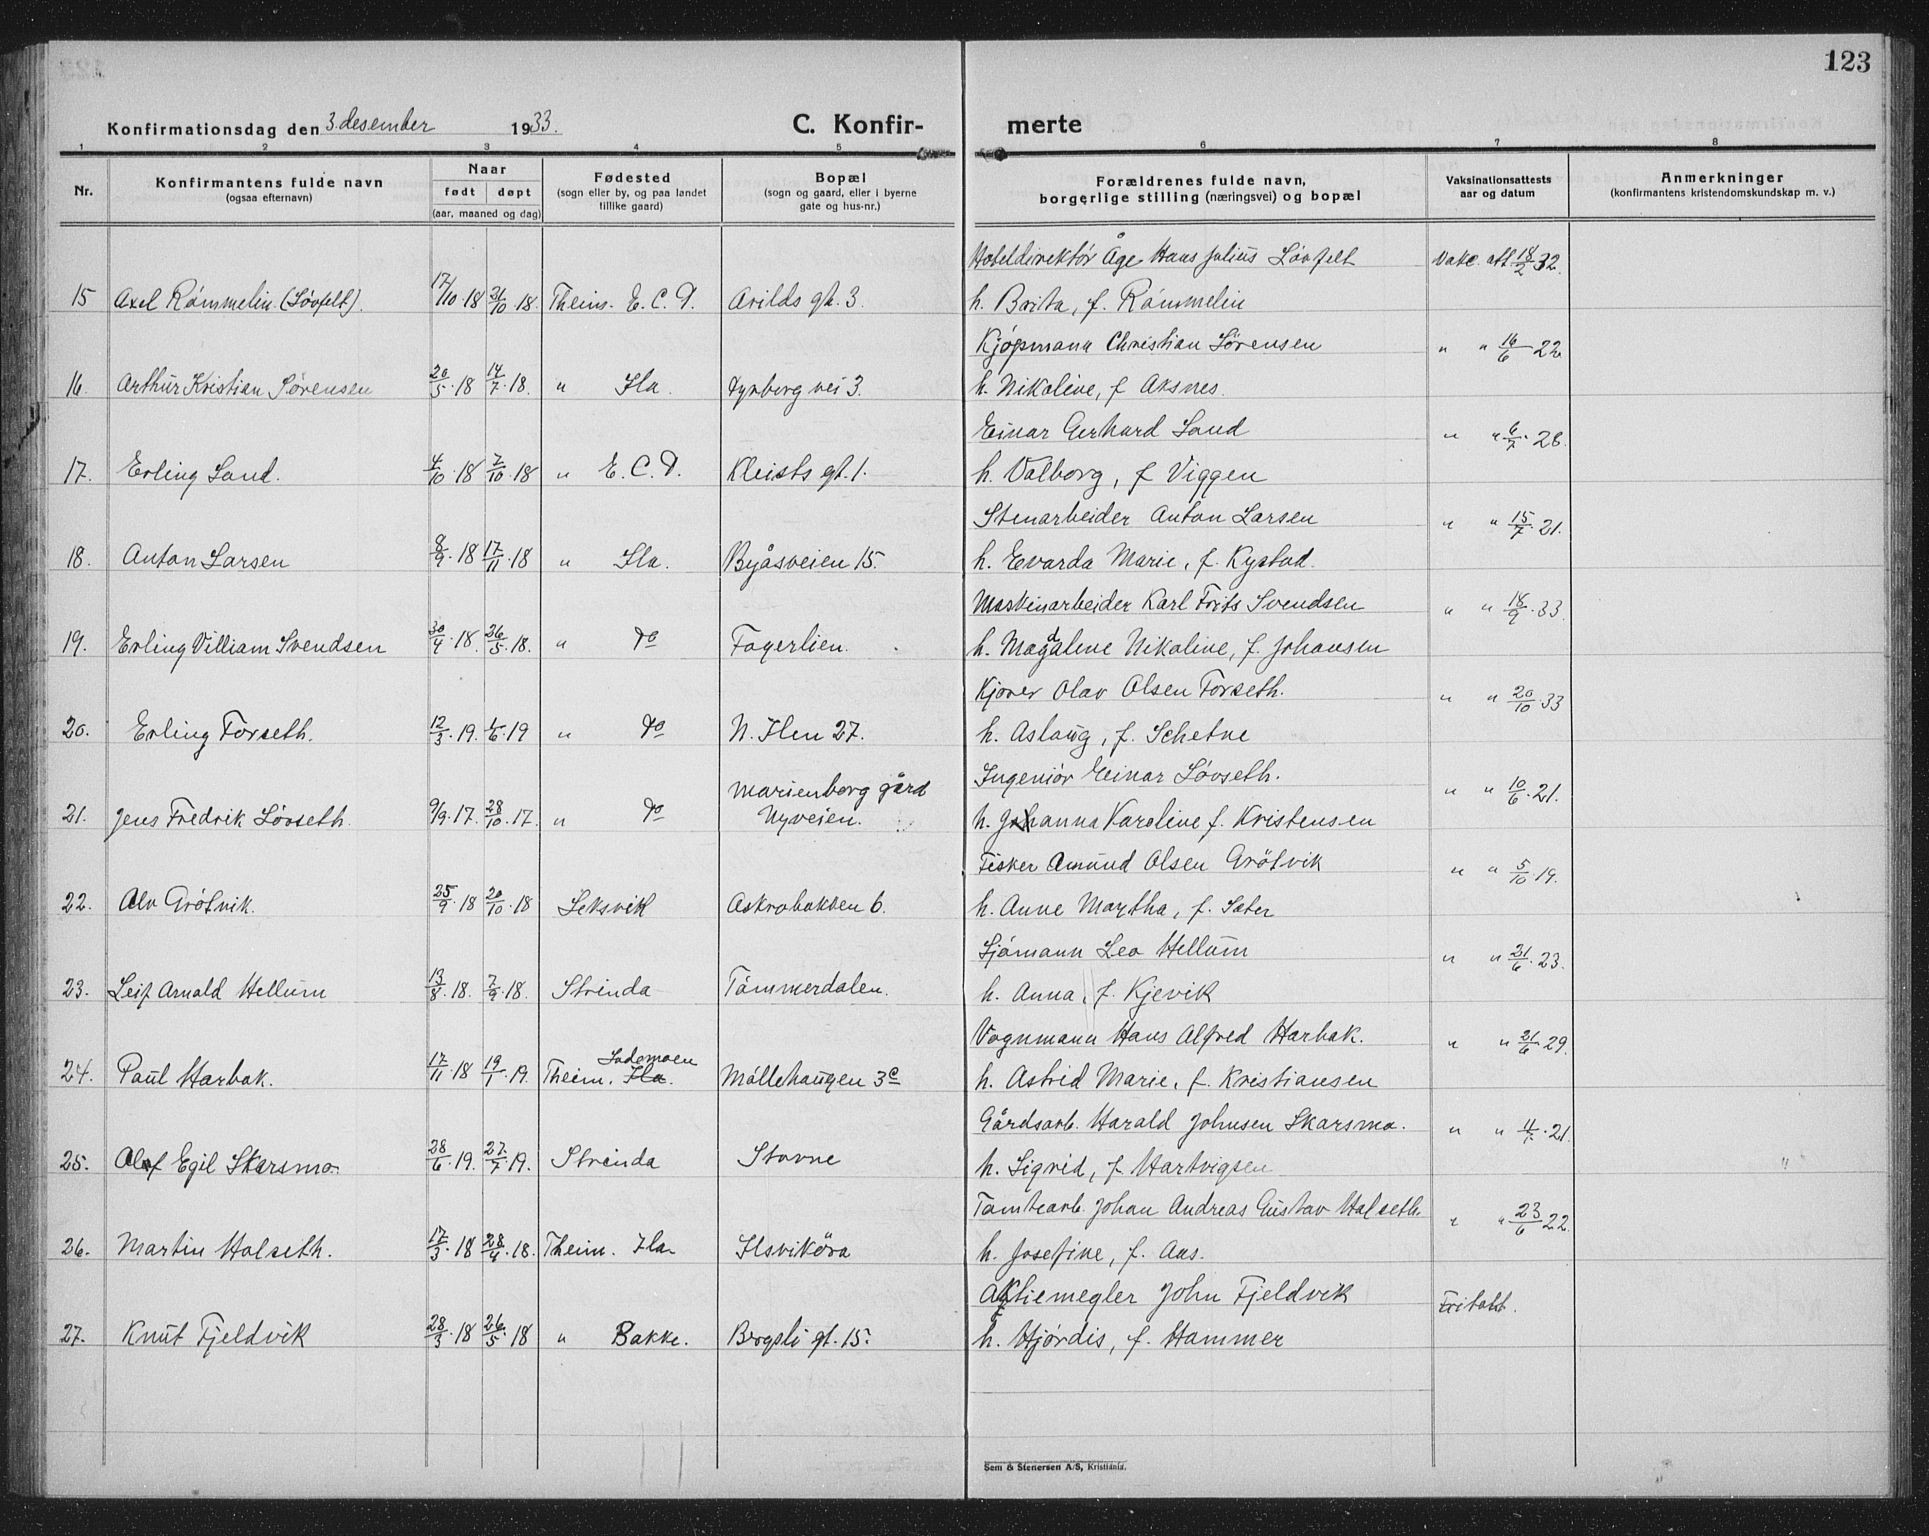 123
Konfirmationsdag den 3. desember 1933. C. Konfir- merte
1 2 3 4 5 6 7 8
Nr. Konfirmantens fulde navn (ogsaa efternavn) Naar født døpt (aar, maaned og dag) Fødested (sogn eller by, og paa landet tillike gaard) Bopæl (sogn og gaard, eller i byerne gate og hus-nr.) Forældrenes fulde navn, borgerlige stilling (næringsvei) og bopæl Vaksinationsattests aar og datum Anmerkninger (konfirmantens kristendomskundskap m. v.)
Hoteldirektör Åge Hans Julius Lövfelt Vakc. att. 18/2 32.
15 Axel Römmelin (Lövfelt). 17/10 18 31/10 18. Theim. E. C. D. Arilds gt. 3. h. Barta, f. Römmelin
Kjöpmann Christian Sörensen " " 16/6 22.
16. Arthur Kristian Sörensen 20/5 18 14/7 18. " Ila. Dyrborg vei 3. h. Nikoline, f. Aksnes.
Einar Gerhard Sand " " 6/7 28.
17. Erling Sand. 4/10 18 7/10 18 " E. C. D. Kleists gt. 1. h. Valborg, f. Viggen
Stenarbeider Anton Larsen " " 15/7 21.
18. Anton Larsen 8/9 18 17/11 18 " Ila. Byåsveien 15. h. Evarda Marie, f. Kystad.
Maskinarbeider Karl Frits Svendsen " " 18/9 33
19. Erling Villiam Svendsen 30/4 18. 26/5 18. " do Fagerlien. h. Magdalene Nikoline, f. Johansen
Kjører Olav Olsen Forseth. " " 20/10 33
20. Erling Forseth. 12/3 19. 1/6 19 " do N. Ilen 27. h. Aslaug, f. Schetne
Marienborg gård Ingeniör Einar Lövseth. " " 10/6 21.
21. Jens Fredrik Lövseth. 9/9 17. 28/10 17. " do Nyveien. h. Johanna Karoline f. Kristensen
Fisker Amund Olsen Grötvik " " 5/10 19.
22. Alv Grötvik. 25/9 18 20/10 18 Leksvik Askrabakken 6. h. Anne Martha, f. Sæter
Sjömann Leo Hellum " " 21/6 23.
23. Leif Arnald Hellum 13/8 18. 7/9 18. Strinda Tömmerdalen. h. Anna, f. Kjevik
Lademoen Vognmann Hans Alfred Harbak. " " 21/6 29.
24. Paul Harbak. 17/11 18 19/1 19. Theim. Ila. Möllehaugen 3c h. Astrid Marie, f. Kristiansen
Gårdsarb. Harald Johnsen Skarsmo. " " 4/7 21.
25. Olaf Egil Skarsmo. 28/6 19. 27/7 19. Strinda Stavne h. Sigrid, f. Hartvigsen
Tomtearb. Johan Andreas Gustav Halseth. " " 23/6 22.
26. Martin Halseth. 17/3 18 28/4 18. Theim. Ila Ilsviköra h. Josefine, f. Aas.
Aktiemegler John Fjeldvik Fritatt.
27. Knut Fjeldvik 28/3 18 26/5 18 " Bakke. Bergsli gt. 15. h. Hjördis, f. Hammer
Sem & Stenersen A/S, Kristiania.